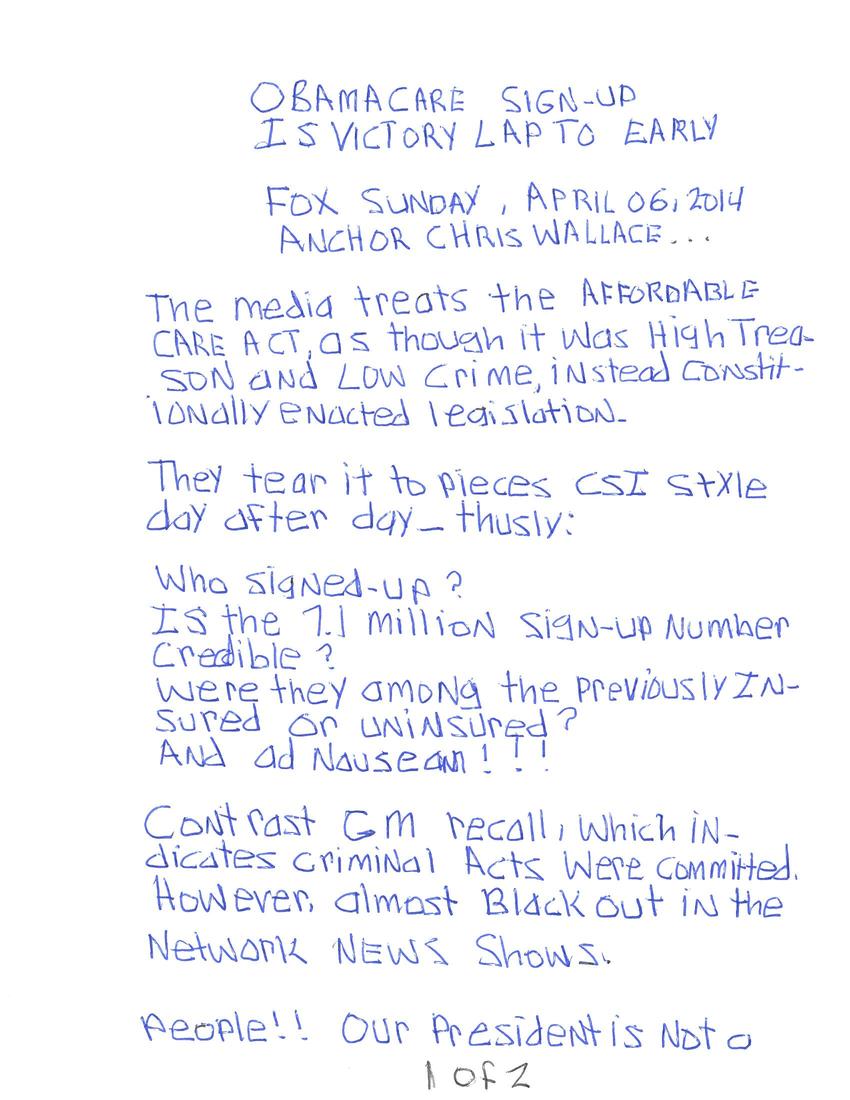 OBAMACARE SIGN-UP
IS VICTORY LAP TO EARLY
FOX SUNDAY, APRIL 06, 2014
ANCHOR CHRIS WALLACE...
The media treats the AFFORDABLE
CARE ACT, as though it was High Trea-
SON and LOW Crime, instead Constit-
ionally enacted legislation-
They tear it to pieces CSI Style
day after day_ thusly:
Who signed-up?
Is the 7.1 million sign-up Number
Credible?
Were they among the previously IN-
sured or uninsured?
And ad Nauseam!!!
Contrast GM recall, which in-
dicates criminal Acts Were committed.
However, almost Black out in the
Network NEWS Shows.
People!! Our President is Not a
1 of 2